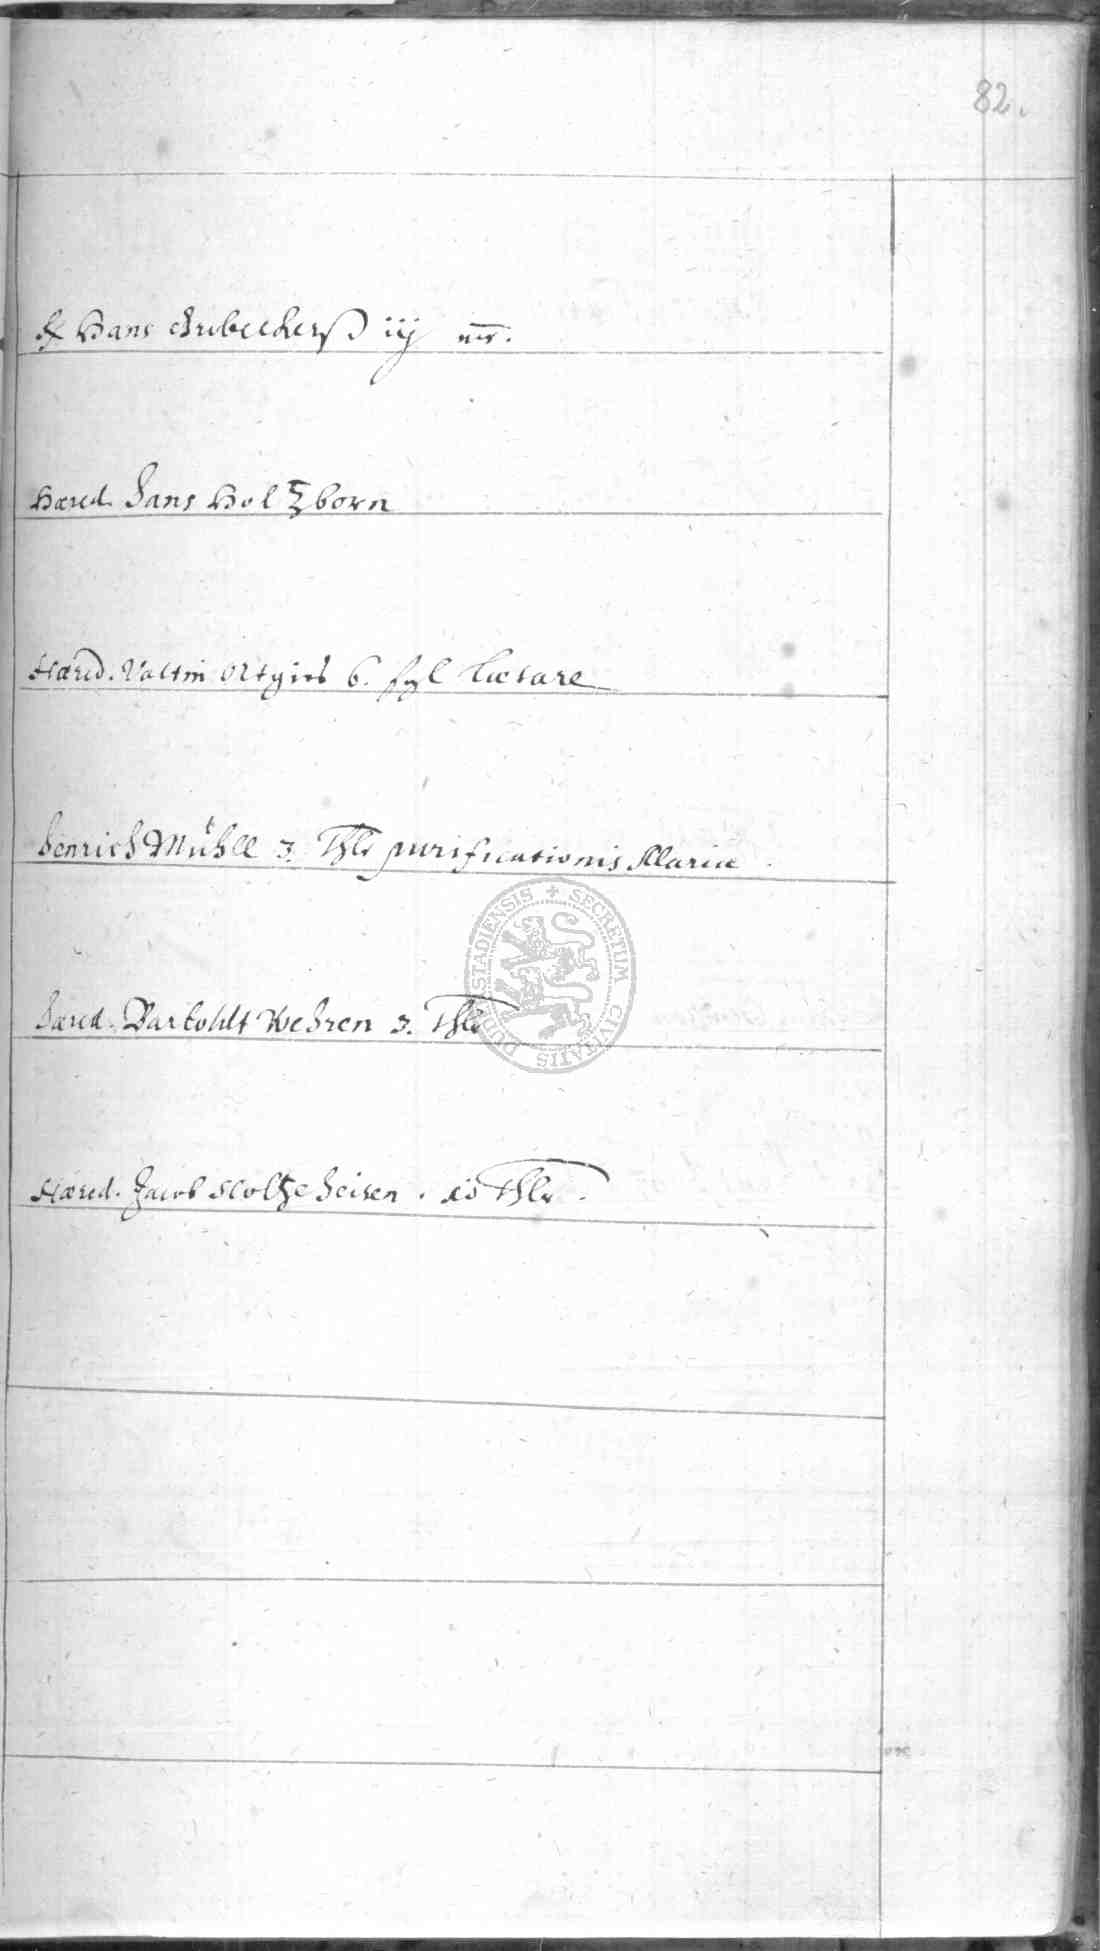 82.
Hans Arebeckerß iij mr.
Hæred. Hans Holtzborn
Hæred. Valtin Ortgieß 6. fgl Lætare
Henrich Mühll 3. Thlr purificationis Mariæ
Hæred. Bartoldt Wehren 3. Thlr
Hæred. Jacob Holtzeheisen. Thlr.
SECRETUM CIVITATIS DUDERSTADIENSIS